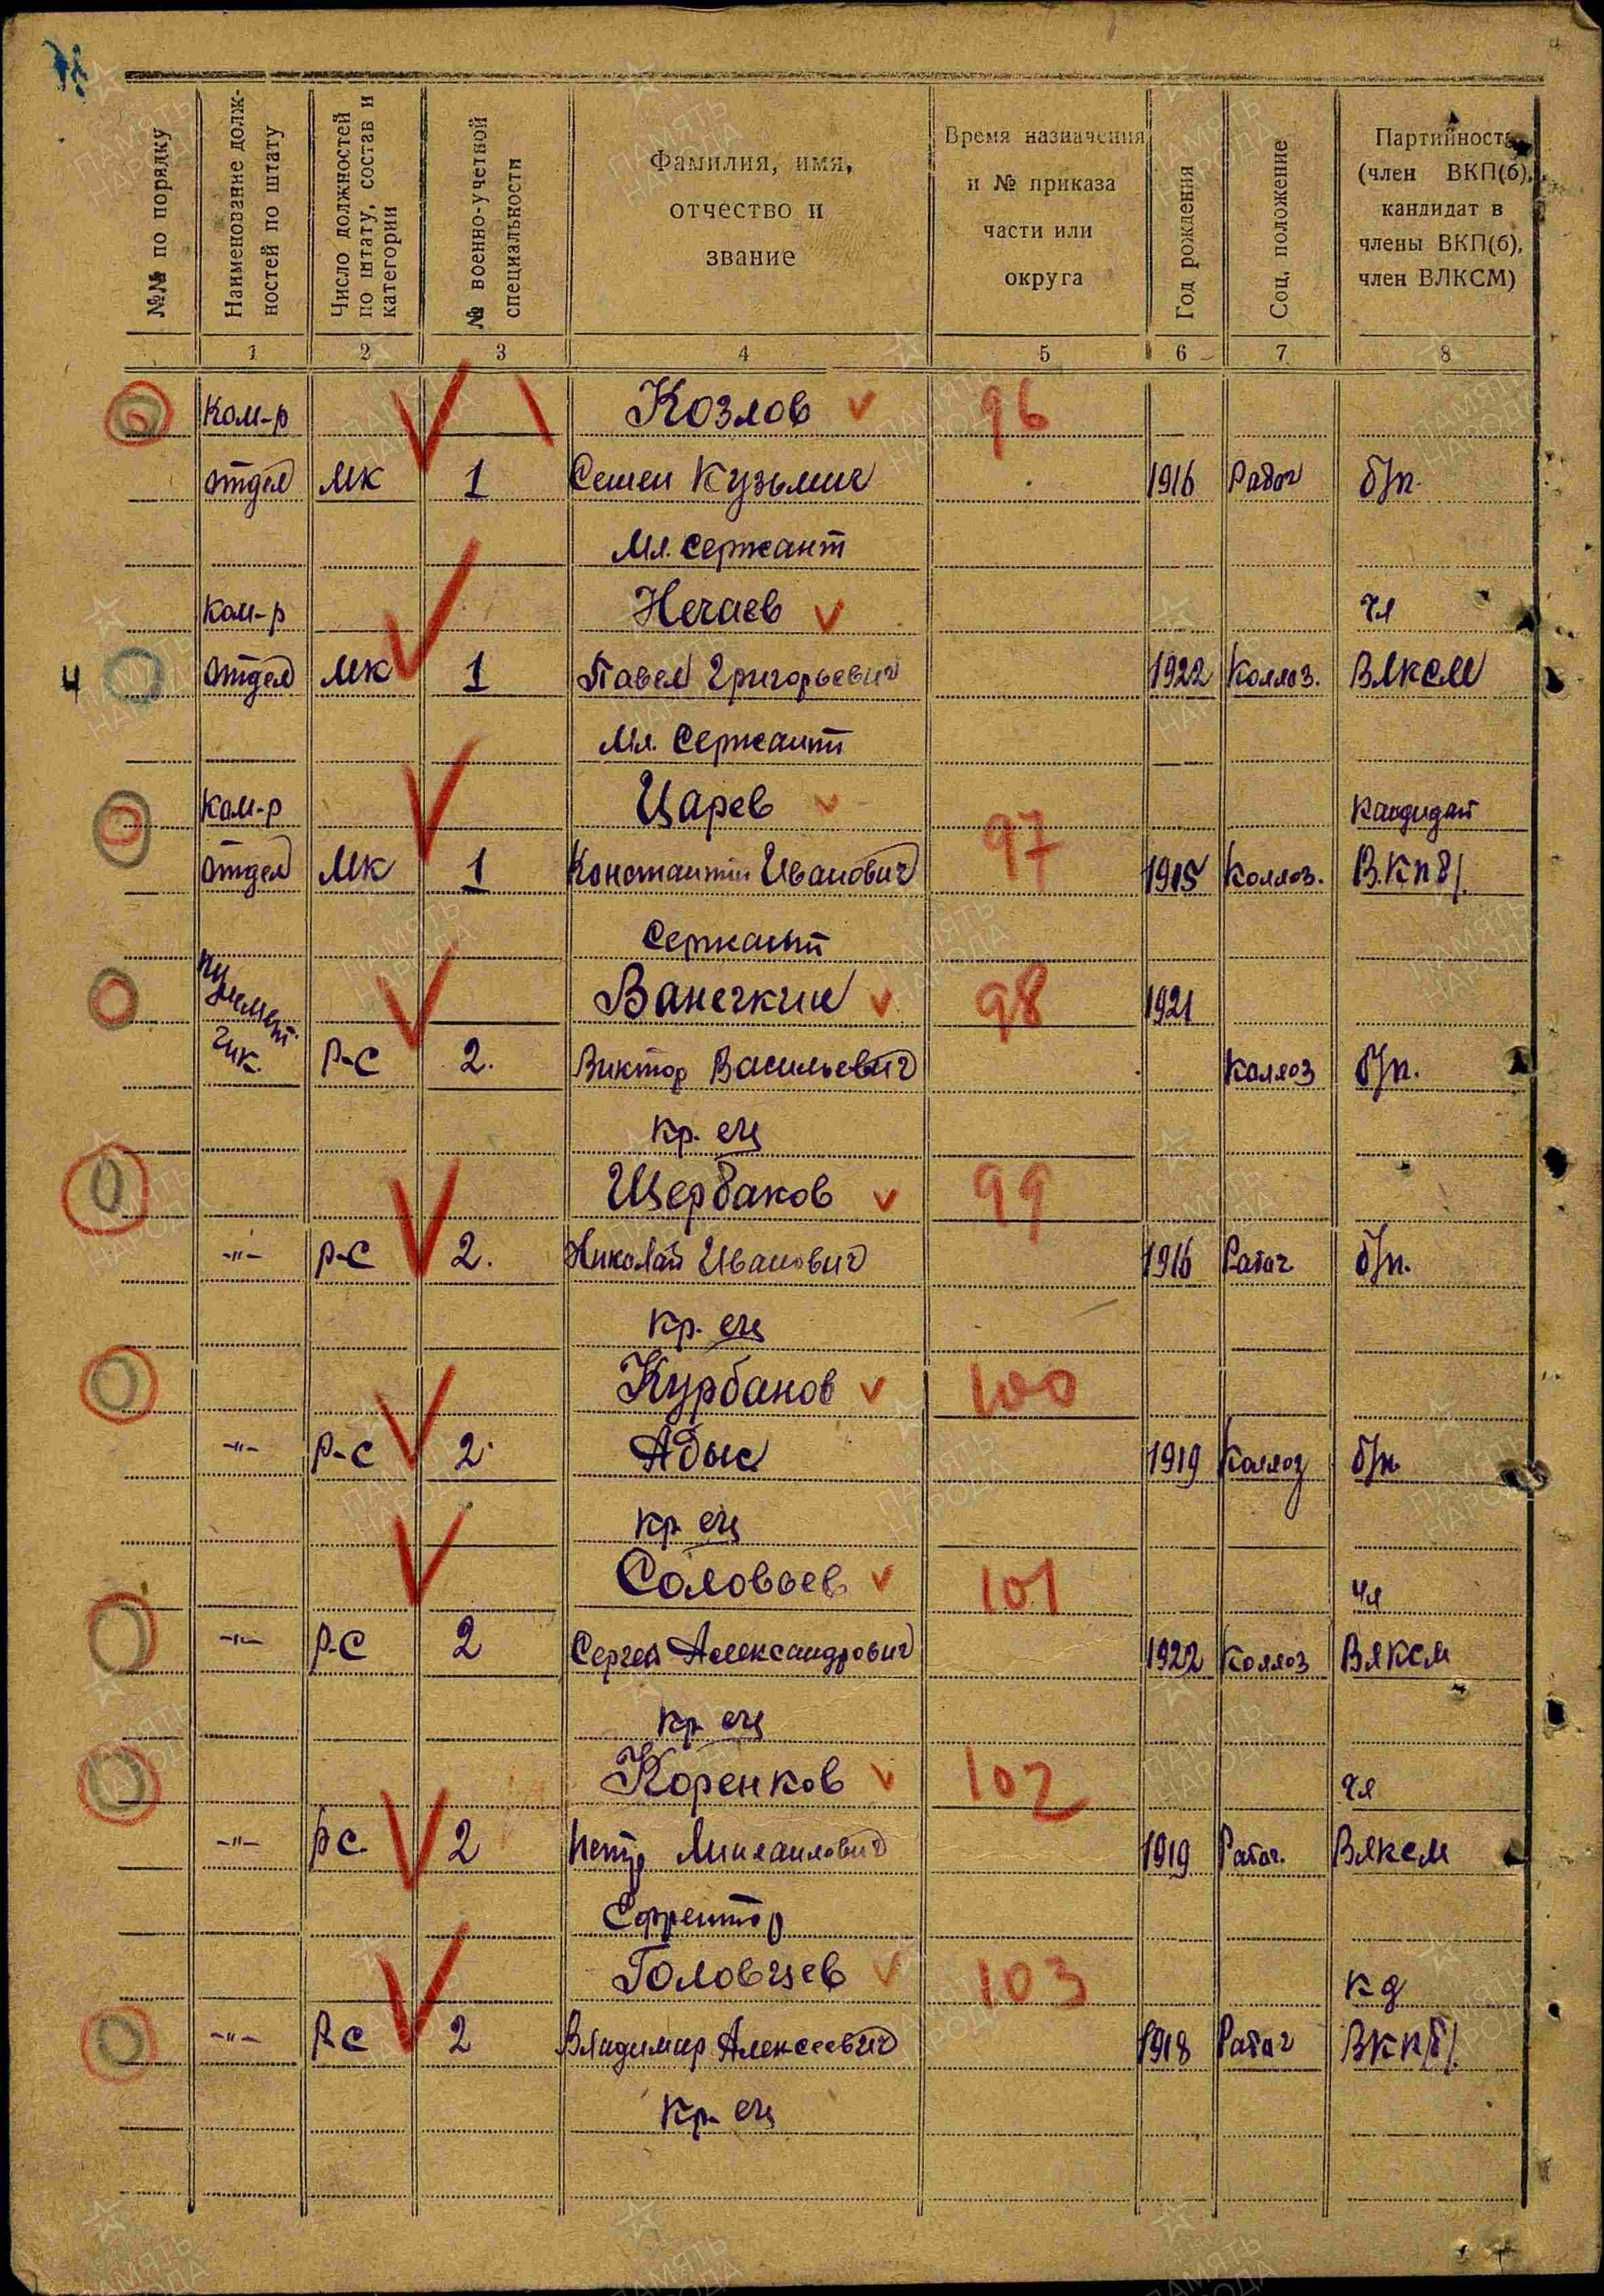 №№ по порядку
Наименование долж-
ностей по штату
Число должностей
по штату, состав и
категории
№ военно-учетной
специальности
Фамилия, имя,
отчество и
звание
Время назначения
и № приказа
части или
округа
Год рождения
Соц. положение
Партийность
(член ВКП(б),
кандидат в
члены ВКП(б),
член ВЛКСМ)
1 2 3 4 5 6 7 8
Ком-р Козлов 96
отдел МК 1 Семен Кузьмич 1916 Рабоч б/п.
Мл. сержант
Ком-р Нечаев чл
4 отдел МК 1 Павел Григорьевич 1922 Колхоз. ВЛКСМ
Мл. Сержант
Ком-р Царев 97 Кандидат
отдел МК 1 Константин Иванович 1915 Колхоз. В.КПб/.
Сержант
Пулемет- Ванечкин 98 1921
чик. Р-С 2. Виктор Васильевич Колхоз б/п.
Кр. ец
Щербаков 99
-"- Р-С 2. Николай Иванович 1916 Рабоч б/п.
Кр. ец
Курбанов 100
-"- Р-С 2. Адыс 1919 Колхоз б/п
Кр. ец
Соловьев 101 чл
-"- Р-С 2 Сергей Александрович 1922 Колхоз ВЛКСМ
Кр. ец
Коренков 102 чл
-"- РС. 2 Петр Михаилович 1919 Рабоч. ВЛКСМ
Ефрейтор
Головчев 103 кд
-"- Р-С 2 Владимир Алексеевич 1918 Рабоч ВКП/б/.
Кр. ец
ПАМЯТЬ
НАРОДА